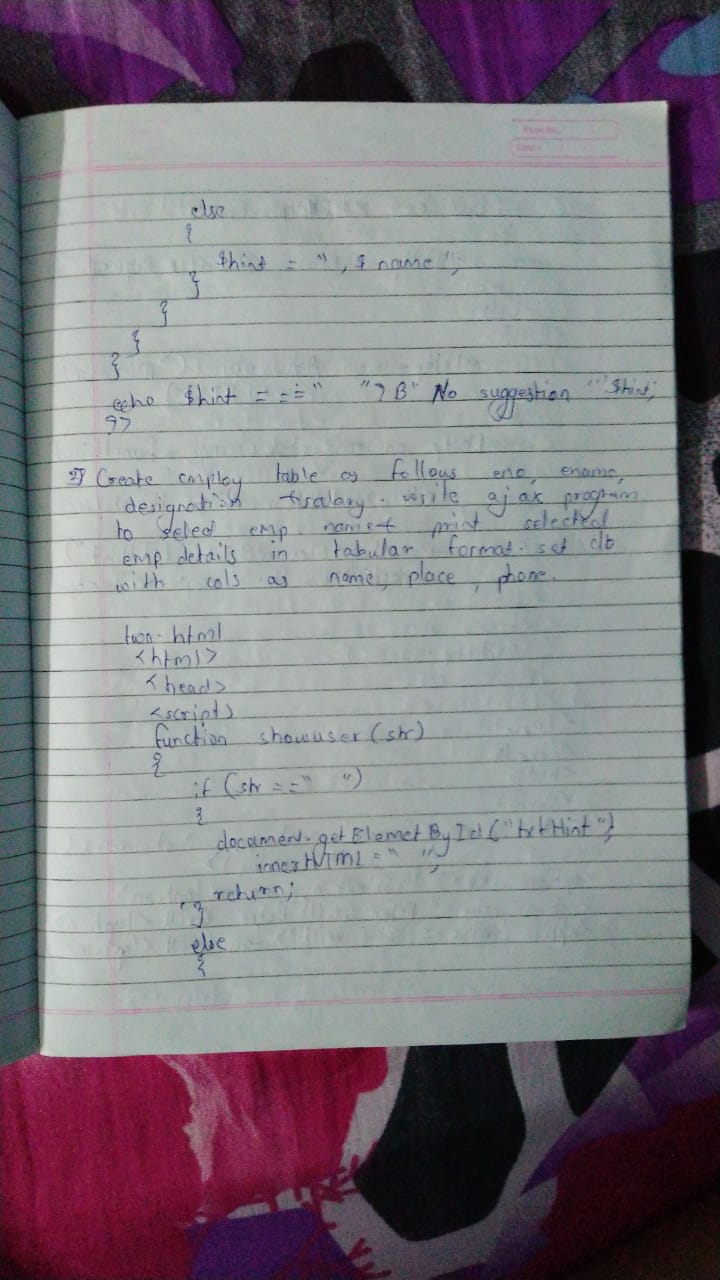 else
{
$hint = ", $ name";
}
}
}
}
echo $hint = = = " "? B" No suggestion "" $hint;
?>
2] Create employ table as follows eno, ename,
designation & salary. write ajax program
to seled emp name & print selected
emp details in tabular format. set db
with cols as name, place, phone.
two.html
<html>
<head>
<script>
function showuser (str)
{
if (str == " ")
{
document.getElemetById ("txtHint")
innerHTML = " ";
return;
}
else
{